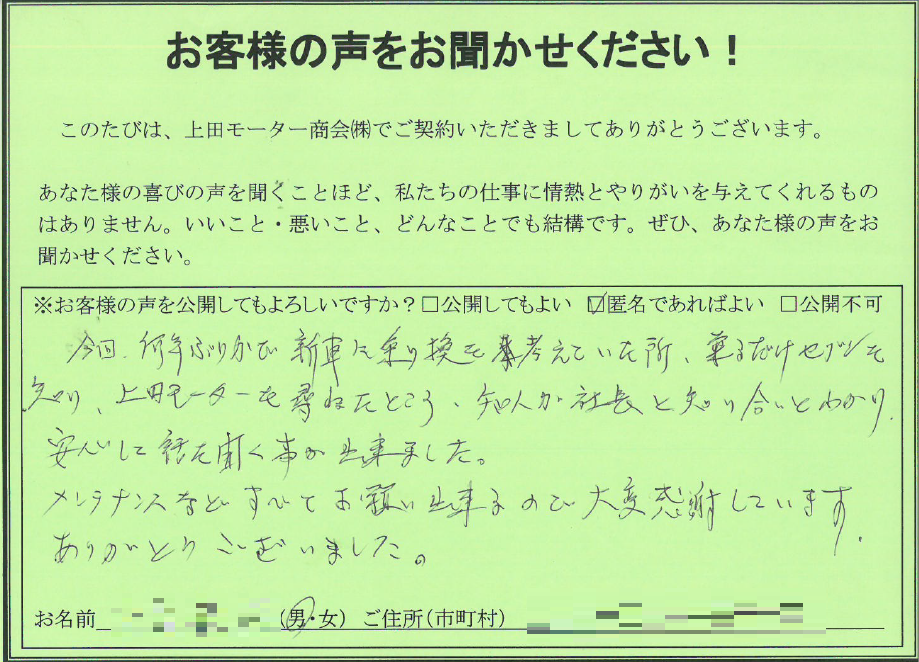 お客様の声をお聞かせください！
このたびは、上田モーター商会㈱でご契約いただきましてありがとうございます。
あなた様の喜びの声を聞くことほど、私たちの仕事に情熱とやりがいを与えてくれるもの
はありません。いいこと・悪いこと、どんなことでも結構です。ぜひ、あなた様の声をお
聞かせください。
※お客様の声を公開してもよろしいですか？□公開してもよい ☑匿名であればよい □公開不可
今回、何年ぶりかで新車に乗り換を考えていた所、乗るだけセブンを
知り、上田モーターを尋ねたところ、知人が社長と知り合いとわかり、
安心して話を聞く事が出来ました。
メンテナンスなどすべてお願い出来るので大変感謝しています。
ありがとうございました。
お名前 (男・女) ご住所(市町村)